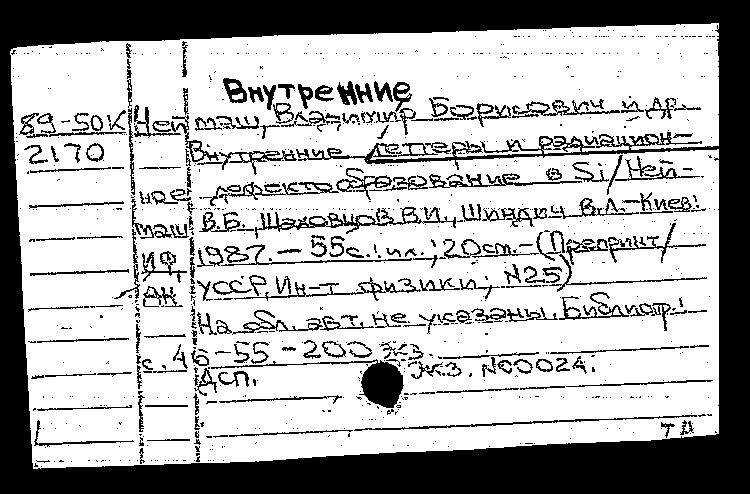 Внутренние
89-50К Неймаш, Владимир Борисович и др.
2170 Внутренние геттеры и радиацион-
ное дефектообразование в Si/Ней-
маш В.Б., Шаховцов В.И., Шиндич В.Л.-Киев:
ИФ, 1987.-55с.:ил.;20см.-(Препринт/
АН УССР, Ин-т физики; N25)
На обл. авт. не указаны. Библиогр.:
с. 46-55.-200 экз.
Дсп. Экз. N00024.